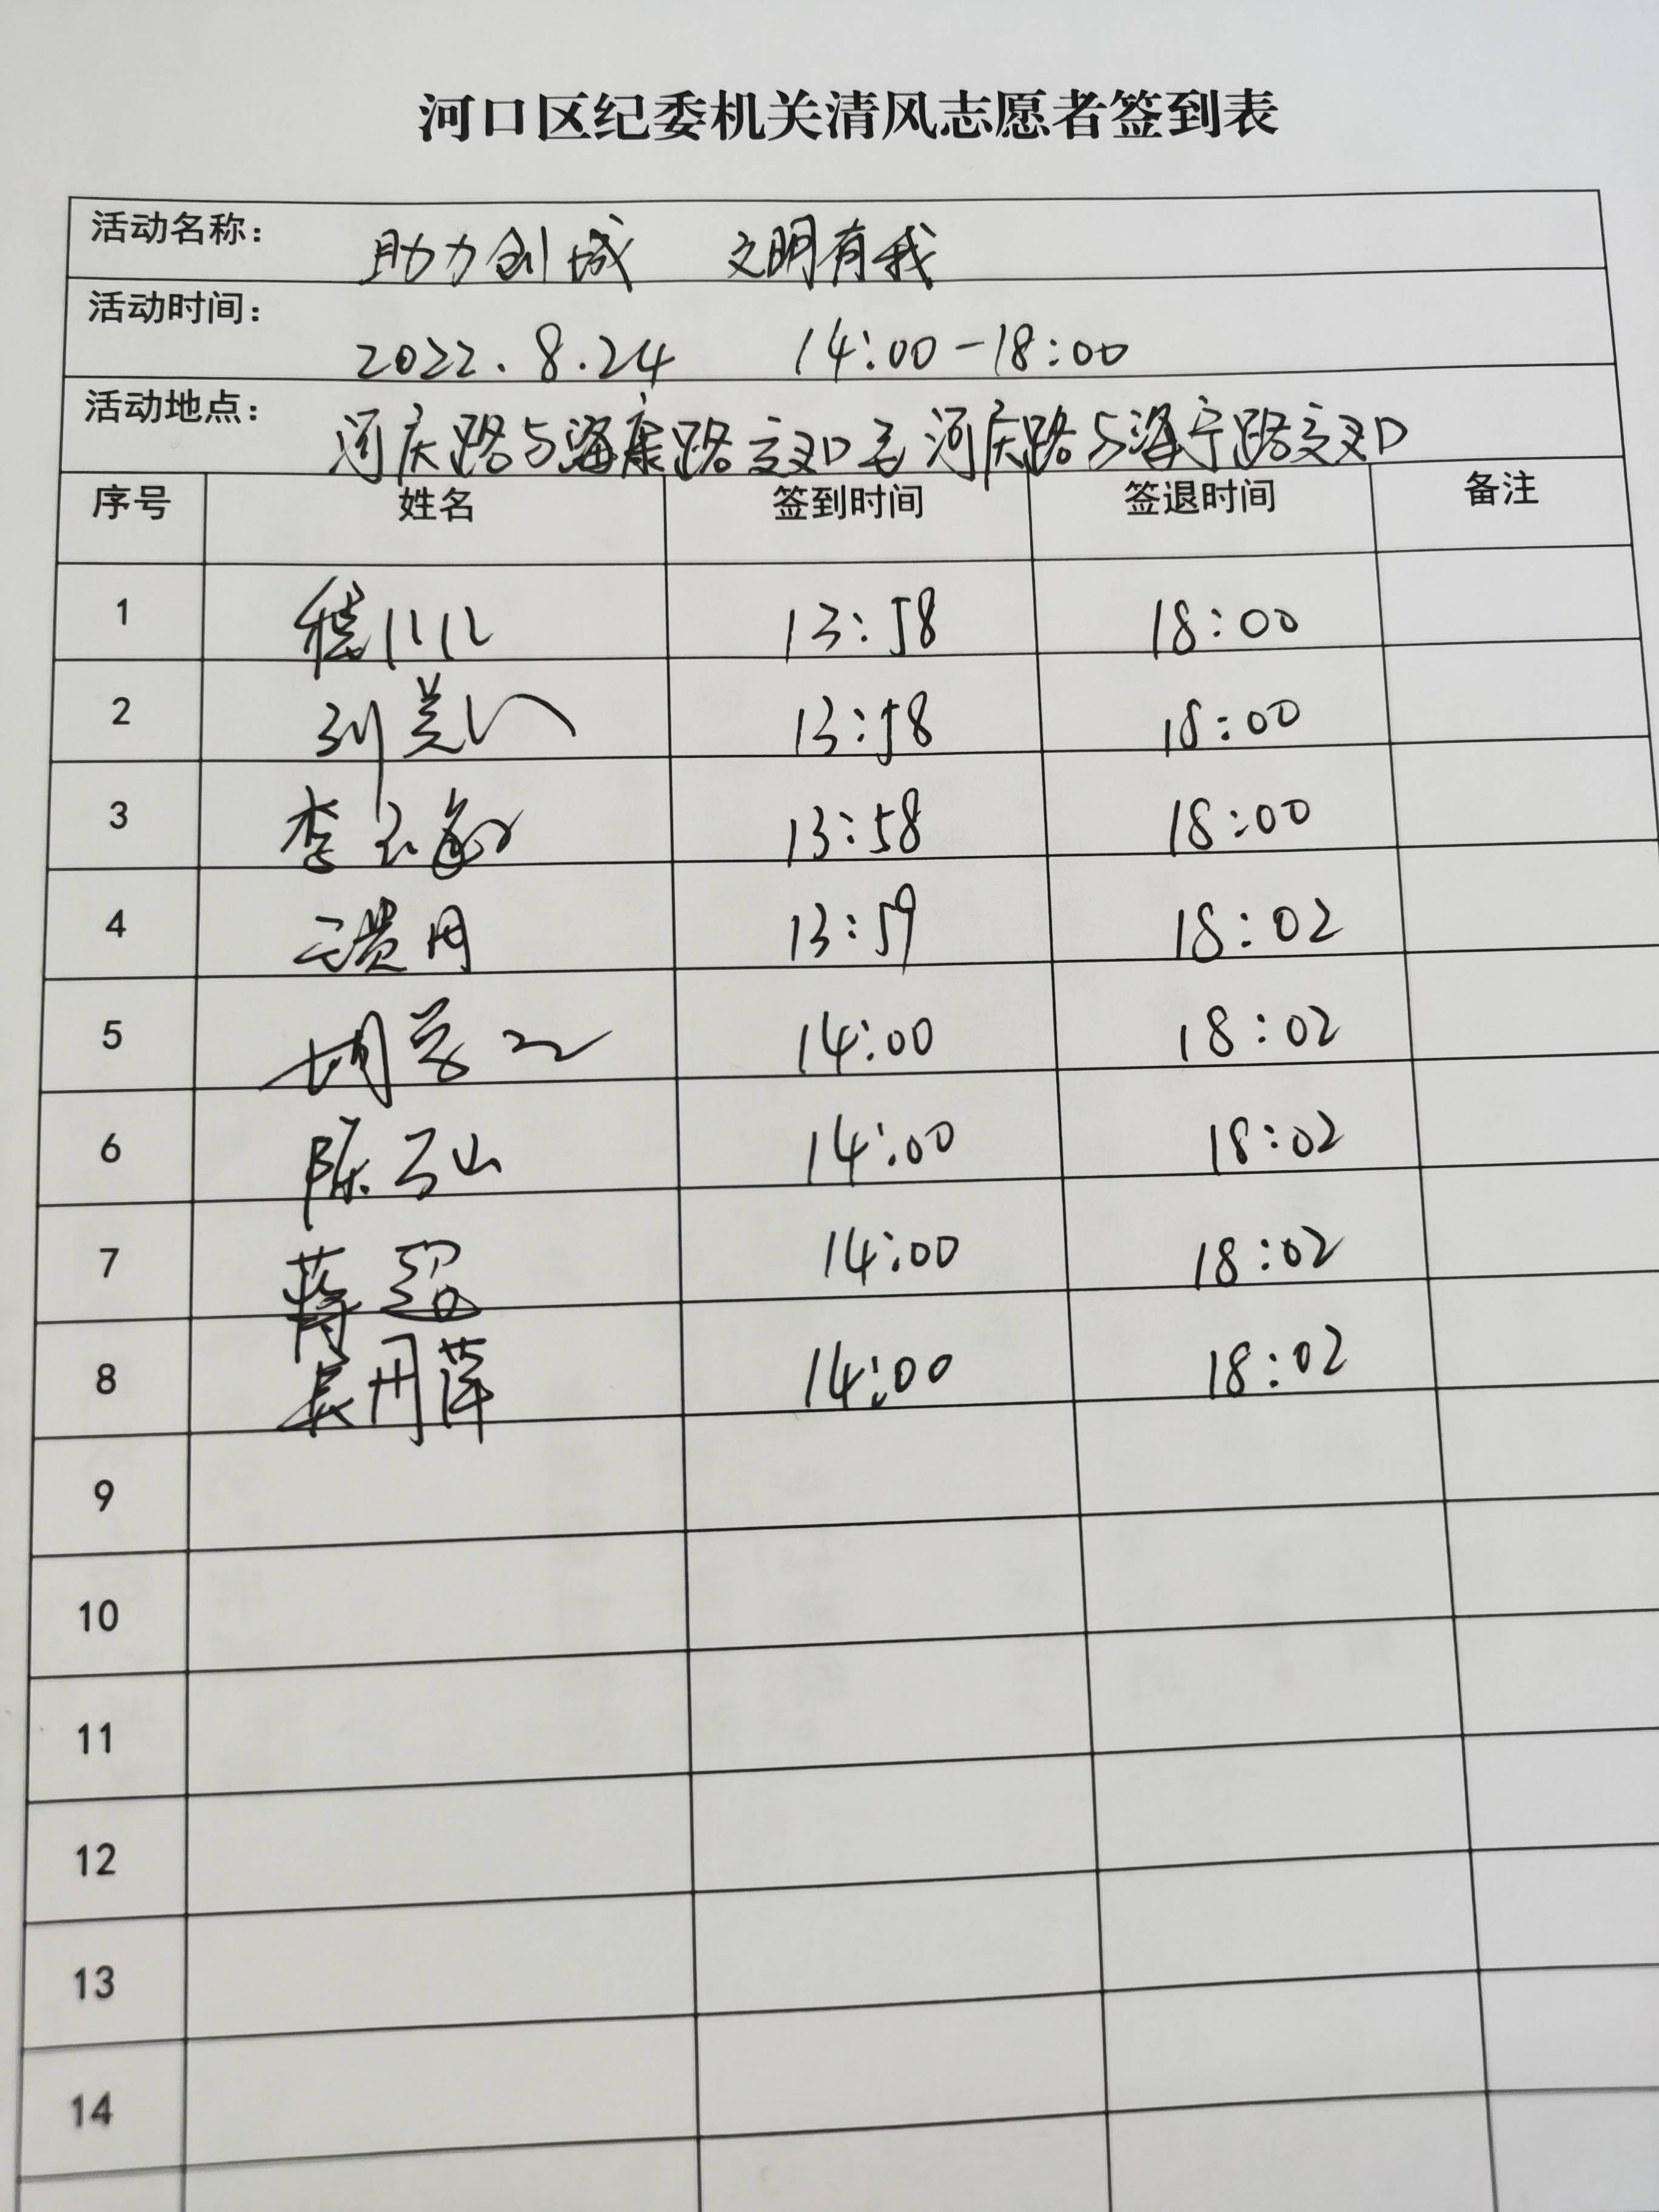 河口区纪委机关清风志愿者签到表
活动名称: 助力创城 文明有我
活动时间: 2022.8.24 14:00-18:00
活动地点: 河庆路与海康路交叉口至河庆路与海宁路交叉口
序号 姓名 签到时间 签退时间 备注
1 13:58 18:00
2 刘 13:58 18:00
3 李 13:58 18:00
4 13:59 18:02
5 胡 14:00 18:02
6 陈 山 14:00 18:02
7 蒋超 14:00 18:02
8 吴丹萍 14:00 18:02
9
10
11
12
13
14